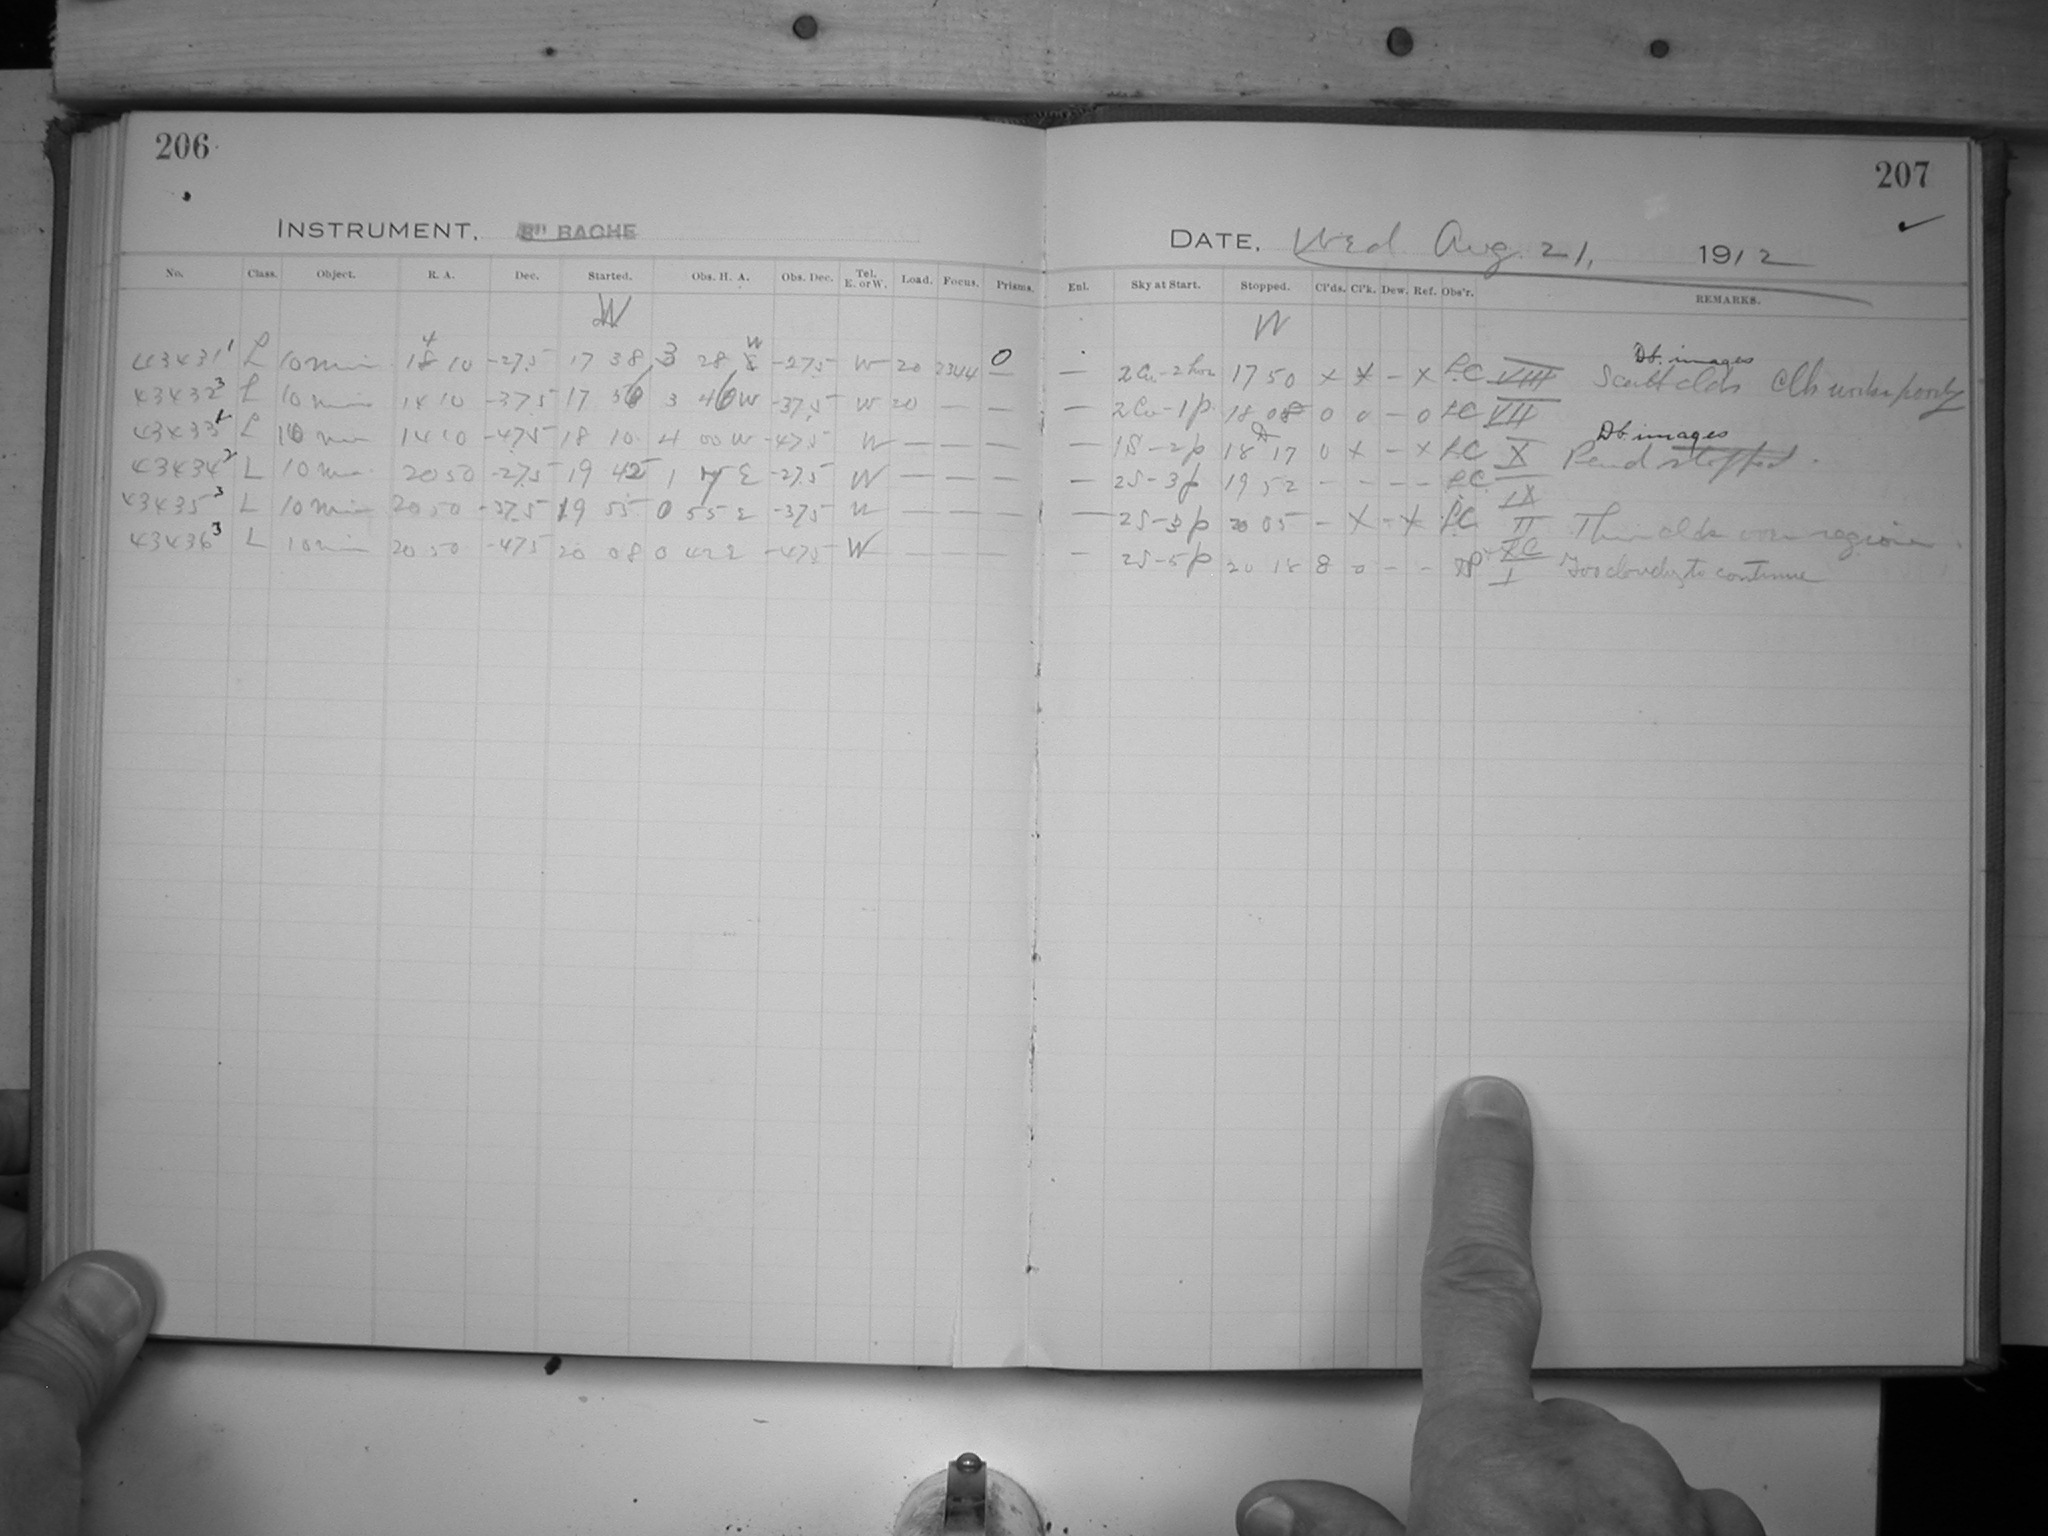 206
207
INSTRUMENT, 8" BACHE
DATE, Wed Aug 21, 1912
No. Class. Object. R. A. Dec. Started. Obs. H. A. Obs. Dec. Tel. E. or W. Load. Focus. Prisms. Enl. Sky at Start. Stopped. Cl'ds. Cl'k. Dew. Ref. Obs'r. REMARKS.
W W
43431 1 L 10 min 14 10 -27.5 17 38 3 28 W -27.5 W 20 2344 0 — 2 Cu - 2 hor 17 50 x x - x LC VIII Db. images Scatt clds Clk works poorly
43432 3 L 10 min 14 10 -37.5 17 56 3 46 W -37.5 W 20 — — — 2 Cu - 1 p 18 08 0 0 - 0 LC VII
43433 L 10 min 14 10 -47.5 18 10 4 00 W -47.5 W — — — — 1S - 2p 18 17 0 x - x LC X Db. images Pend stopped.
43434 2 L 10 min 20 50 -27.5 19 42 1 E -27.5 W — — — — 2S - 3p 19 52 - - - - LC IX
43435 3 L 10 min 20 50 -37.5 19 55 0 55 E -37.5 W — — — — 2S - 3p 20 05 - x - x LC II Thin clds over region.
43436 3 L 10 min 20 50 -47.5 20 08 0 42 E -47.5 W — — — — 2S - 5p 20 18 8 0 - - LC I Too cloudy to continue